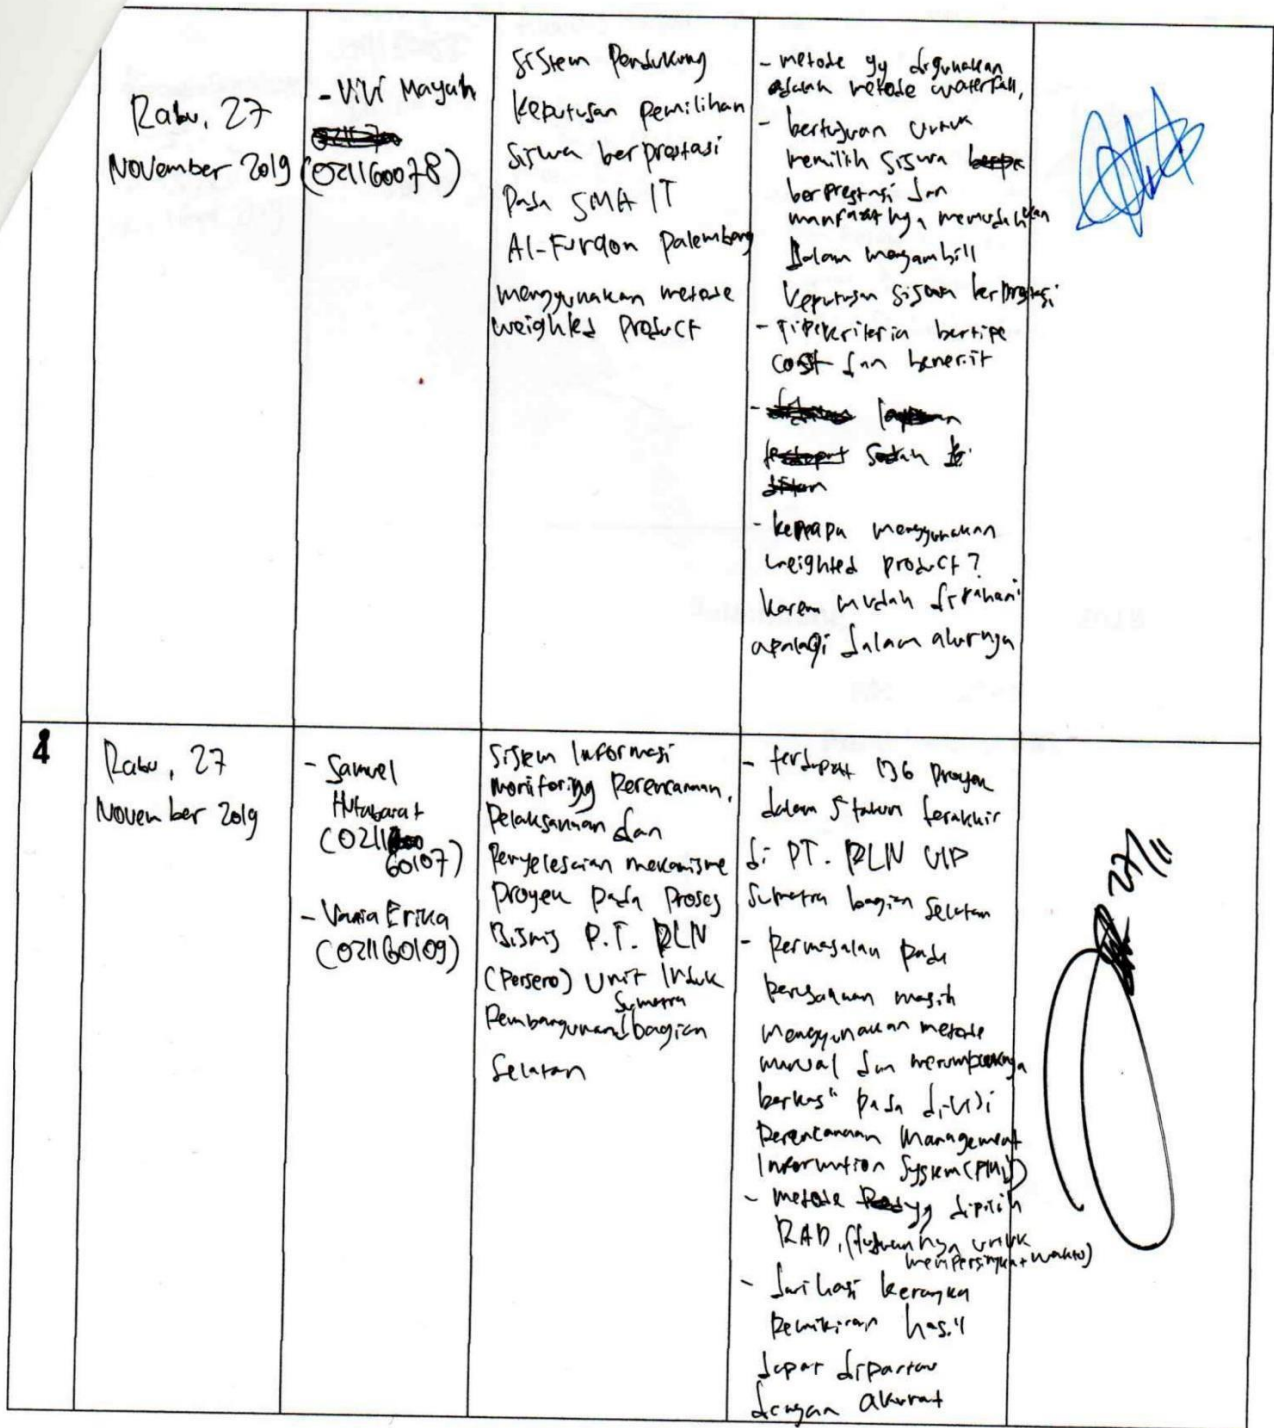 Rabu, 27
November 2019
- Vivi Mayah
(021160078)
Sistem Pendukung
Keputusan pemilihan
Siswa berprestasi
Pada SMA IT
Al-Furqon Palembang
menggunakan metode
weighted Product
- metode yg digunakan
adalah metode waterfall,
- bertujuan untuk
memilih siswa
berprestasi dan
manfaatnya memudahkan
dalam mengambill
keputusan siswa berprestasi
- Tipe kriteria bertipe
cost dan benefit
- kenapa menggunakan
weighted product?
karena mudah dipahami
apalagi dalam alurnya
4
Rabu, 27
November 2019
- Samuel
Hutabarat
(0211
60107)
- Vania Erika
(021160109)
Sistem Informasi
monitoring Perencanaan,
Pelaksanaan dan
Penyelesaian mekanisme
Proyek pada Proses
Bisnis P.T. PLN
(Persero) Unit Induk
Pembangunan Sumatra bagian
Selatan
- terdapat 136 proyek
dalam 5 tahun terakhir
di PT. PLN UIP
Sumatra bagian Selatan
- Permasalan pada
perusahaan masih
menggunakan metode
manual dan menumpuknya
berkas" pada divisi
Perencanaan Management
Information System (PMIS)
- metode yg dipilih
RAD, (tujuannya untuk
mempersingkat waktu)
- dari hasi kerangka
Pemikiran hasil
dapat dipantau
dengan akurat
27/11